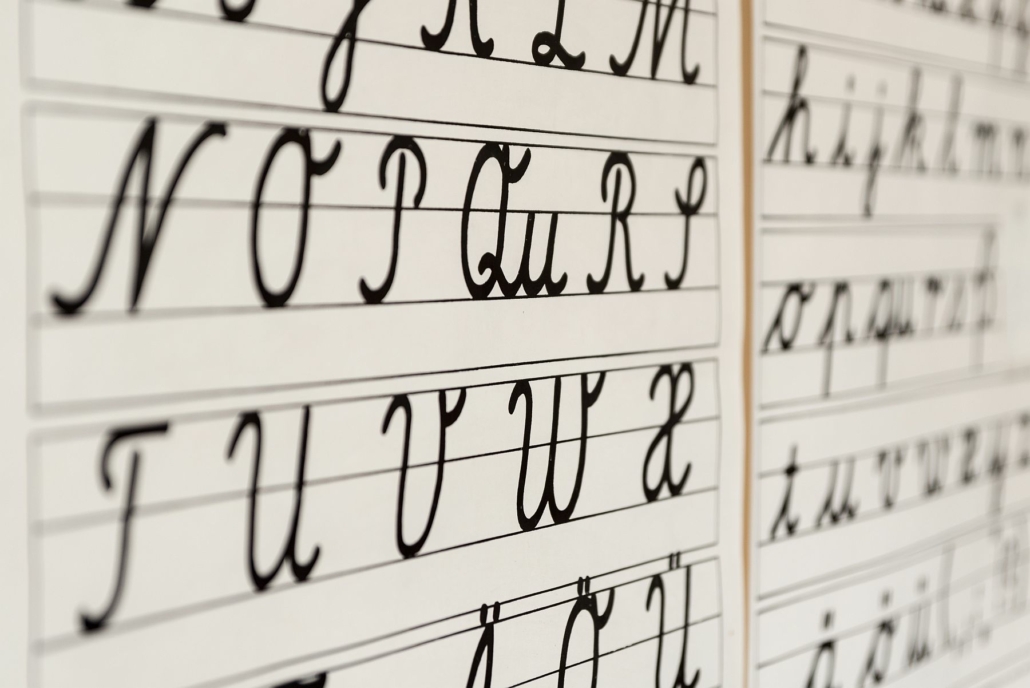 J K L M
N O P Qu R S
T U V W X
Ä Ö Ü
h i j k l m n
o p qu r s ß
t u v w x y z
ä ö ü